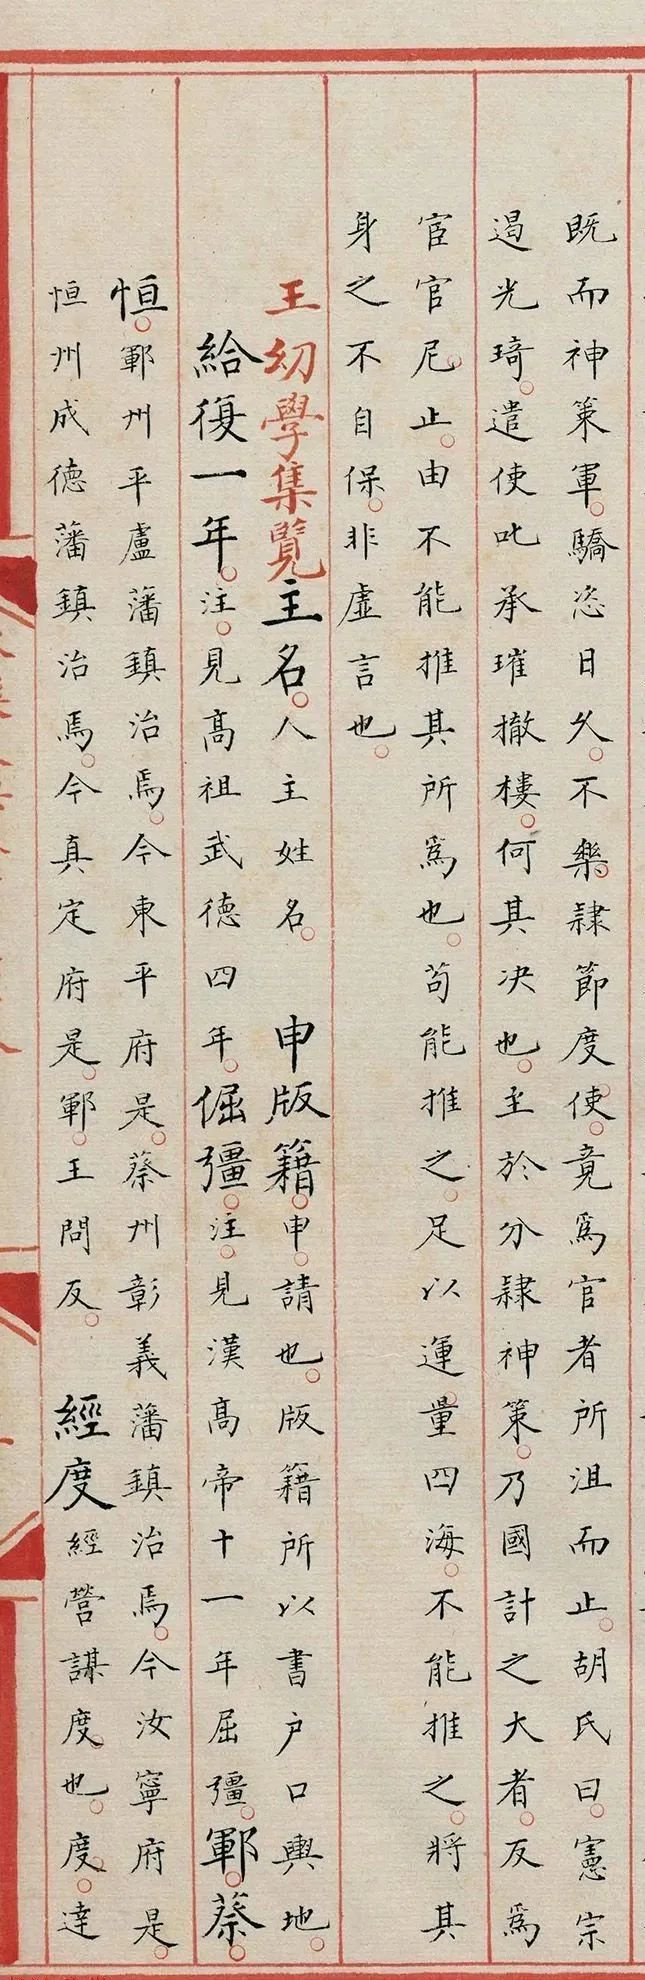 既而神策軍。驕恣日久。不樂隷節度使。竟爲宦者所沮而止。胡氏曰。憲宗
遏光琦。遣使叱承璀撤樓。何其决也。至於分隷神策。乃國計之大者。反爲
宦官尼。止。由不能推其所爲也。苟能推之。足以運量四海。不能推之。將其
身之不自保。非虚言也。
王幼學集覽主名。人主姓名。申版籍。申。請也。版籍所以書户口輿地。
給復一年。注。見髙祖武德四年。倔彊。注。見漢髙帝十一年屈彊。鄆。蔡。
恒。鄆州平盧藩鎮治焉。今東平府是。蔡州彰義藩鎮治焉。今汝寧府是。
恒州成德藩鎮治焉。今真定府是。鄆。王問反。經度經營謀度也。度。達